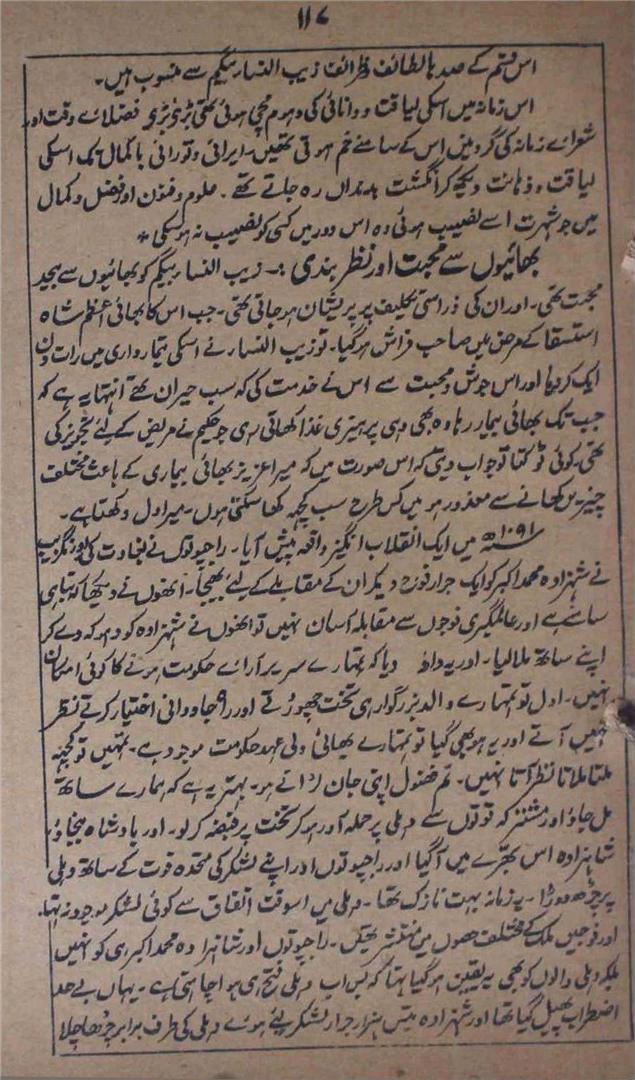 ۱۱۷
اس قسم کے صدہا لطائف و ظرائف زیب النسا بیگم سے منسوب ہیں۔
اس زمانہ میں اسکی لیاقت و دانائی کی دھوم مچی ہوئی تھی بڑی بڑی فضلاے وقت اور
شعراے زمانہ کی گردنیں اس کے سامنے خم ہوتی تھیں۔ ایرانی و تورانی باکمال تک اسکی
لیاقت و ذہانت دیکھ کر انگشت بدنداں رہ جاتے تھے۔ علوم و فنون اور فضل و کمال
میں جو شہرت اسے نصیب ہوئی وہ اس دور میں کسی کو نصیب نہ ہوسکی *
بھائیوں سے محبت اور نظر بندی :۔ زیب النسا بیگم کو بھائیوں سے بیحد
محبت تھی۔ اور ان کی ذراسی تکلیف پر پریشان ہوجاتی تھی۔ جب اس کا بھائی اعظم شاہ
استسقا کے مرض میں صاحب فراش ہوگیا۔ تو زیب النسا نے اسکی تیمارداری میں رات دن
ایک کردیا اور اس جوش و محبت سے اس نے خدمت کی کہ سب حیران تھے انتہا یہ ہے کہ
جب تک بھائی بیمار رہا وہ بھی وہی پرہیزی غذا کھاتی رہی جو حکیم نے مریض کے لئے تجویز کی
تھی۔ کوئی ٹوکتا تو جواب دیتی کہ اس صورت میں کہ میرا عزیز بھائی بیماری کے باعث مختلف
چیزیں کھانے سے معذور ہو میں کس طرح سب کچھ کھا سکتی ہوں۔ میرا دل دکھتا ہے۔
۱۰۹۱ھ میں ایک انقلاب انگیز واقعہ پیش آیا۔ راجپوتوں نے بغاوت کی اورنگزیب
نے شہزادہ محمد اکبر کو ایک جرار فوج دیکر ان کے مقابلے کے لئے بھیجا۔ انھوں نے دیکھا کہ تباہی
سامنے ہے اور عالمگیری فوجوں سے مقابلہ آسان نہیں تو انھوں نے شہزادہ کو دہوکہ دے کر
اپنے ساتھ ملا لیا۔ اور یہ دلا دیا کہ تمہارے سریر آراے حکومت ہونے کا کوئی امکان
نہیں۔ اول تو تمہارے والد بزرگوار ہی تخت چھوڑتے اور راہ جاودانی اختیار کرتے نظر
نہیں آتے اور یہ ہو بھی گیا تو تمہارے بھائی ولی عہد حکومت موجود ہے۔ تمہیں تو کچھ
ملتا ملاتا نظر آتا نہیں۔ تم فضول اپنی جان لڑاتے ہو۔ بہتر یہ ہے کہ ہمارے ساتھ
مل جاؤ اور مشترکہ قوتوں سے دہلی پر حملہ آور ہو کر تخت پر قبضہ کرلو۔ اور بادشاہ بنجاؤ
شاہزادہ اس بھترے میں آگیا اور راجپوتوں اور اپنے لشکر کی متحدہ قوت کے ساتھ دہلی
پر چڑھ دوڑا۔ یہ زمانہ بہت نازک تھا۔ دہلی میں اسوقت اتفاق سے کوئی لشکر موجود نہ تھا۔
اور فوجیں ملک کے مختلف حصوں میں منتشر تھیں۔ راجپوتوں اور شاہزادہ محمد اکبر ہی کو نہیں
بلکہ دہلی والوں کو بھی یہ یقین ہوگیا تھا کہ بس اب دہلی فتح ہی ہوا چاہتی ہے۔ یہاں بے حد
اضطراب پھیل گیا تھا اور شہزادہ ہزار جرار لشکر لئے ہوئے دہلی کی طرف برابر چڑھا چلا